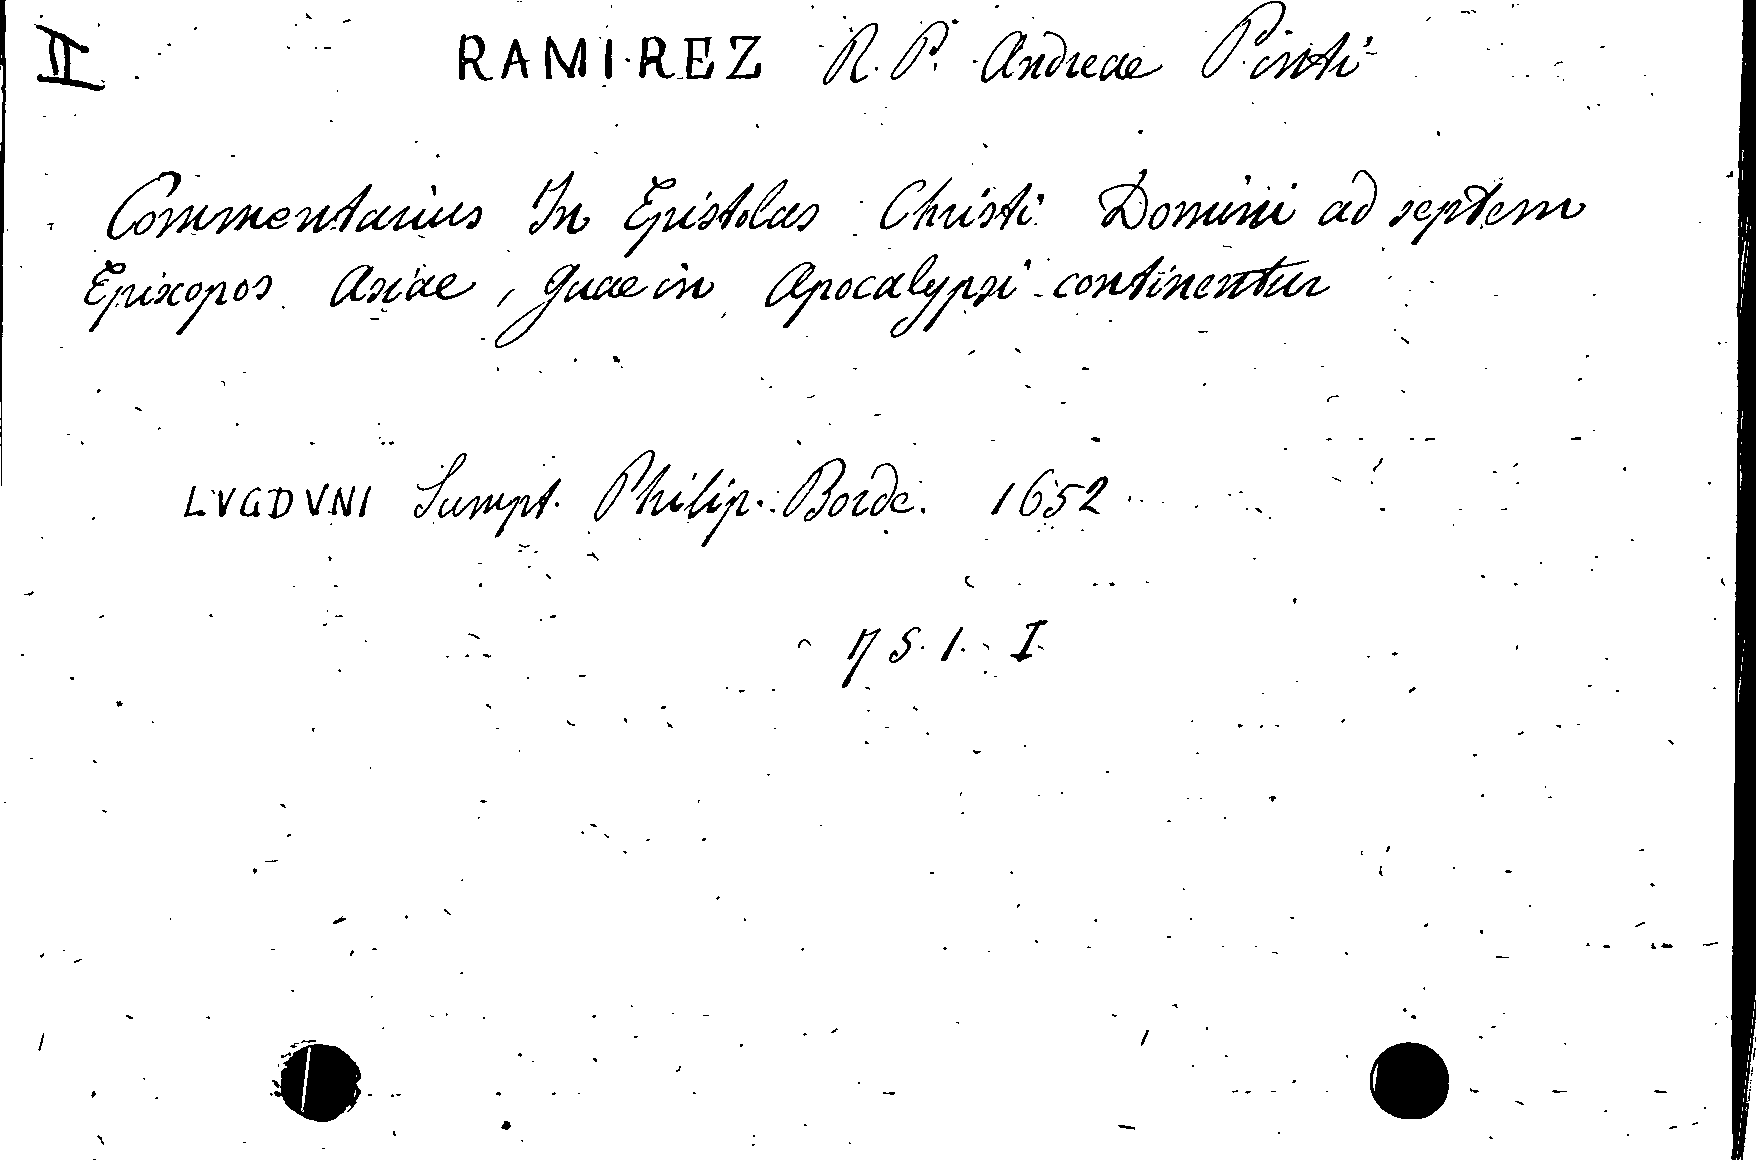 II RAMIREZ R. P. Andreae Pinti
Commentarius In Epistolas Christi Domini ad septem
Episcopos Asiae, quae in Apocalypsi continentur
LVGDVNI Sumpt. Philip. Borde. 1652
η S. 1. I